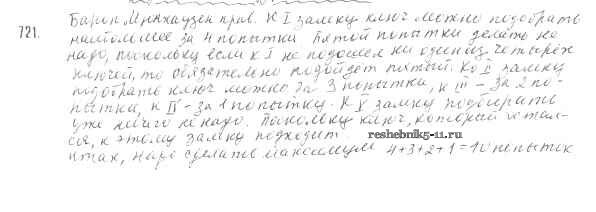 721. Барон Мюнхаузен прав. К I замку ключ можно подобрать
наибольшее за 4 попытки Пятой попытки делать не
надо, поскольку если к I не подошел ни один из четырёх
ключей, то обязательно подойдет пятый. Ко II замку
подобрать ключ можно за 3 попытки, к III – за 2 по-
пытки, к IV – за 1 попытку. К V замку подбирать
уже ничего не надо. Поскольку ключ, который остал-
ся, к этому замку подходит
reshebnik5-11.ru
итак, надо сделать максимум 4+3+2+1=10 попыток